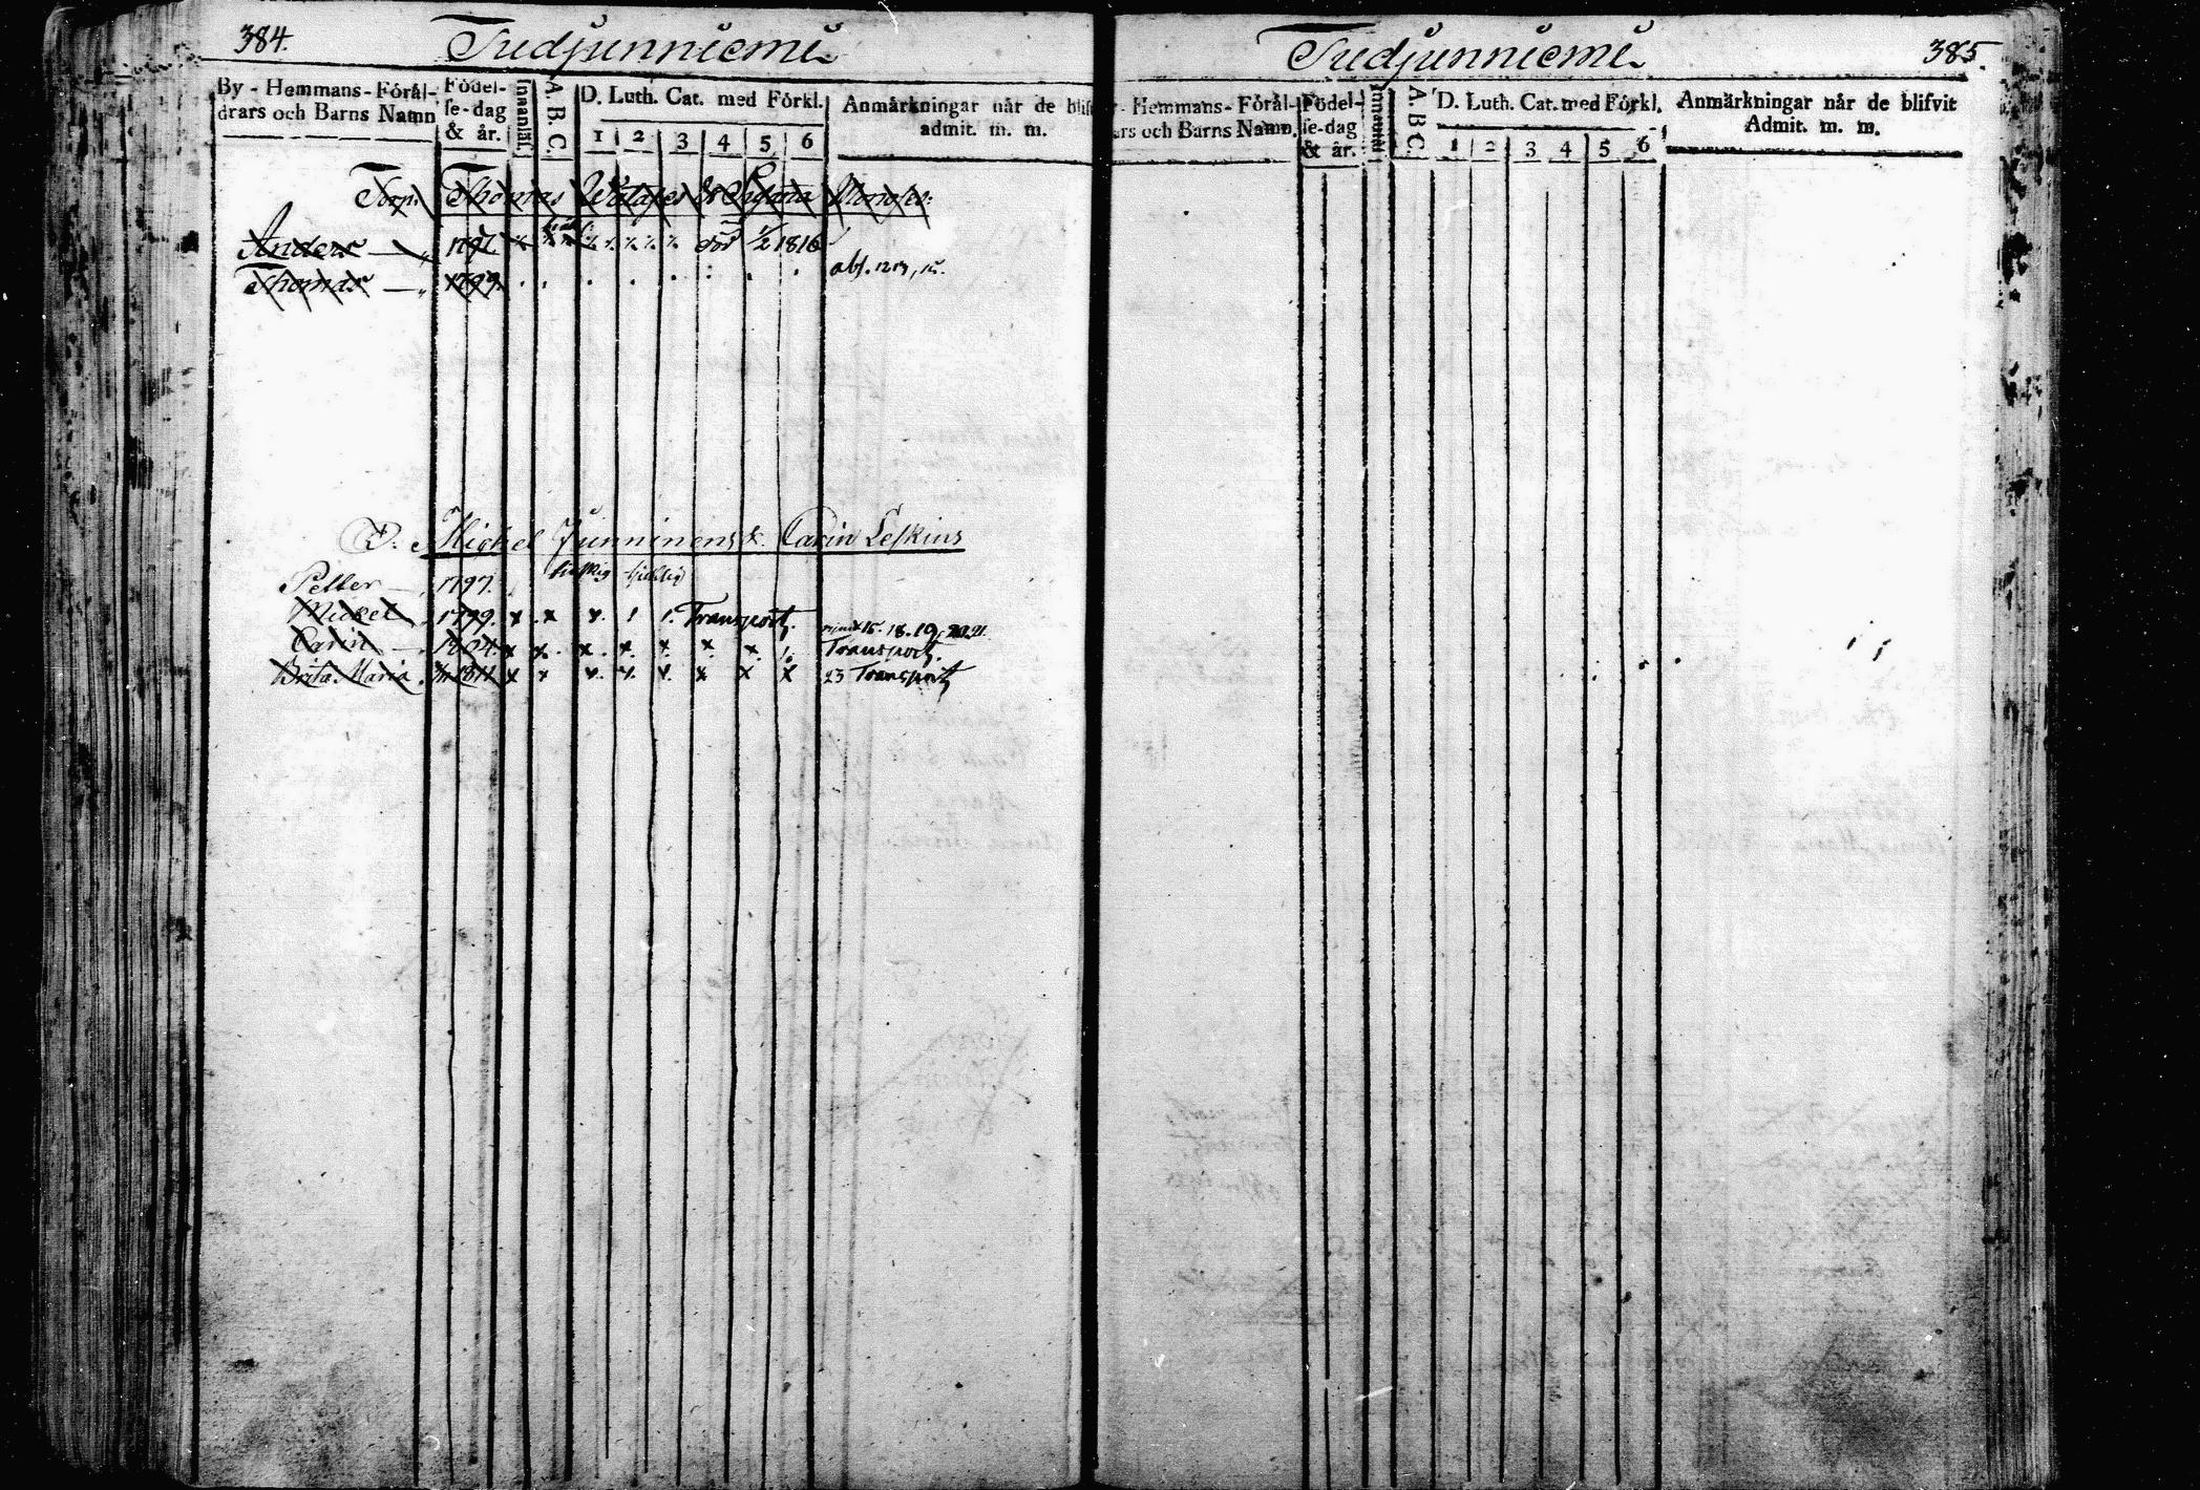 384.
Tudjunniemi
By - Hemmans - Förål-
drars och Barns Namn
Födel-
se-dag
& år.
Innanläs.
A. B. C.
D. Luth. Cat. med Förkl.
1 2 3 4 5 6
Anmårkningar når de blif
admit. m. m.
Torp. Thomas &
Anders 1797 död 1/2 1816
Thomas 1799 abs.
D: Michel Junninens & Carin Leskins
Petter 1797.
Mickel 1799. x x Transport.
18. 19. 20. 21.
Carin 1804 x x x x x x x Transport.
Brita Maria 1811 x x x x x x x x 23 Transport
Tudjunniemi
385.
- Hemmans - Förål-
ars och Barns Namn.
Födel-
se-dag
& år.
Innanläs
A. B. C.
D. Luth. Cat. med Förkl.
1 2 3 4 5 6
Anmärkningar når de blifvit
Admit. m. m.